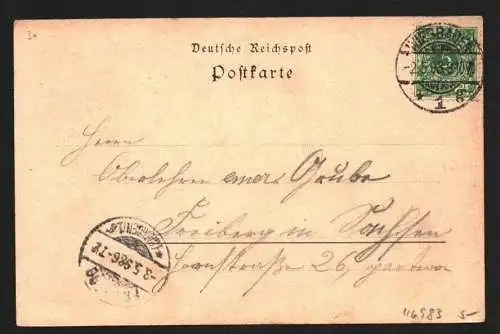 Deutsche Reichspost
Postkarte
WIESBADEN
1
Herrn
Oberlehrer Grube
Freiberg in Sachsen
Hornstraße 26, parterre
-3.5.98 6-7
116983 5-